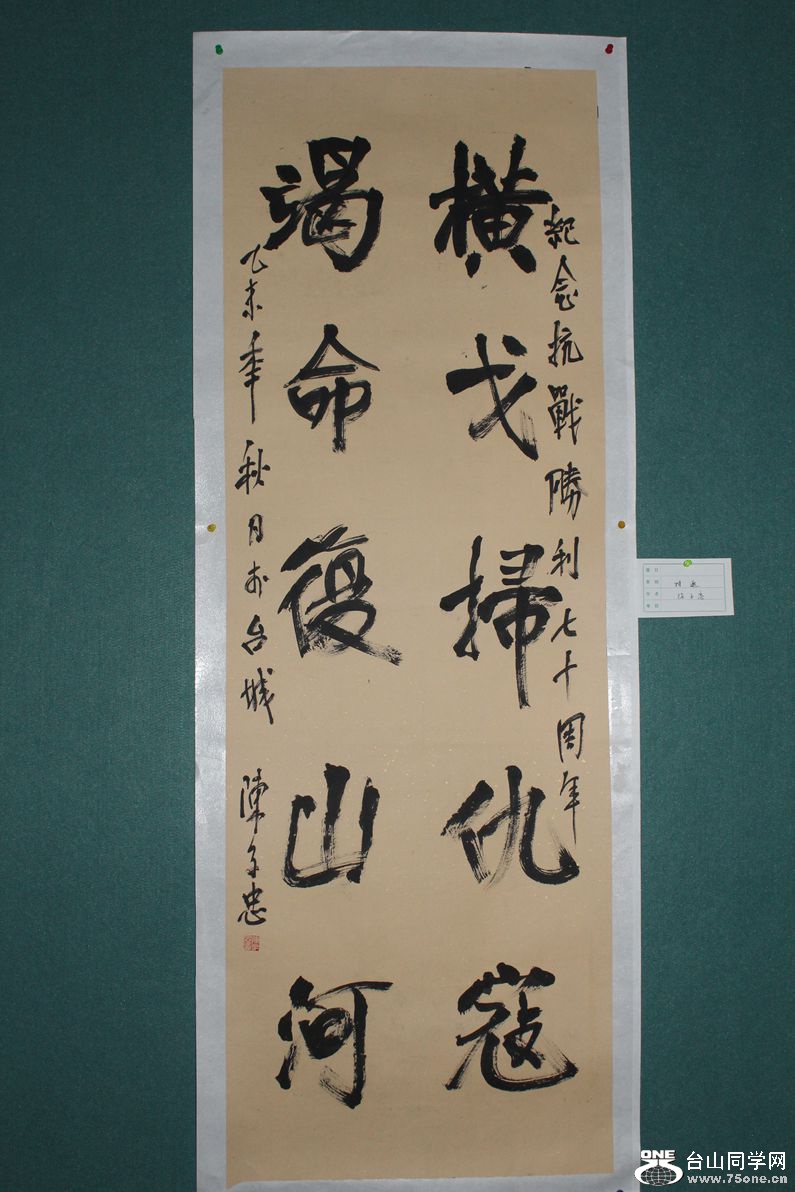 紀念抗戰勝利七十周年
橫戈掃仇寇
竭命復山河
乙未年秋月於台城
陳子忠
ONE
台山同学网
www.75one.cn